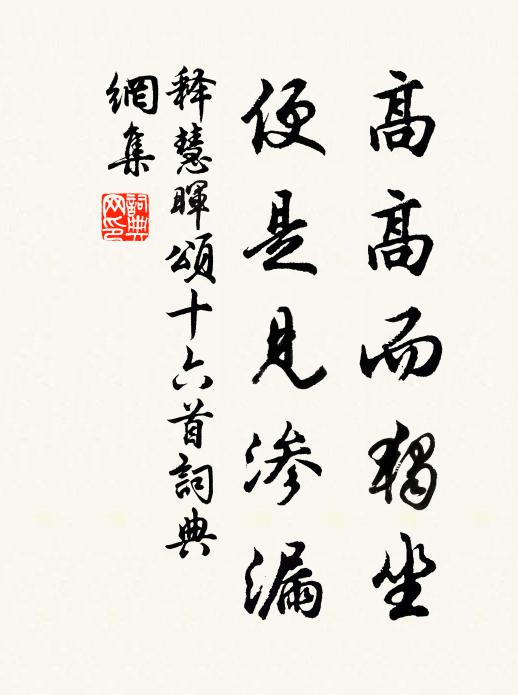 高高而獨坐
便是見滲漏
釋慧暉頌十六首詞典
網集
詞典
网印